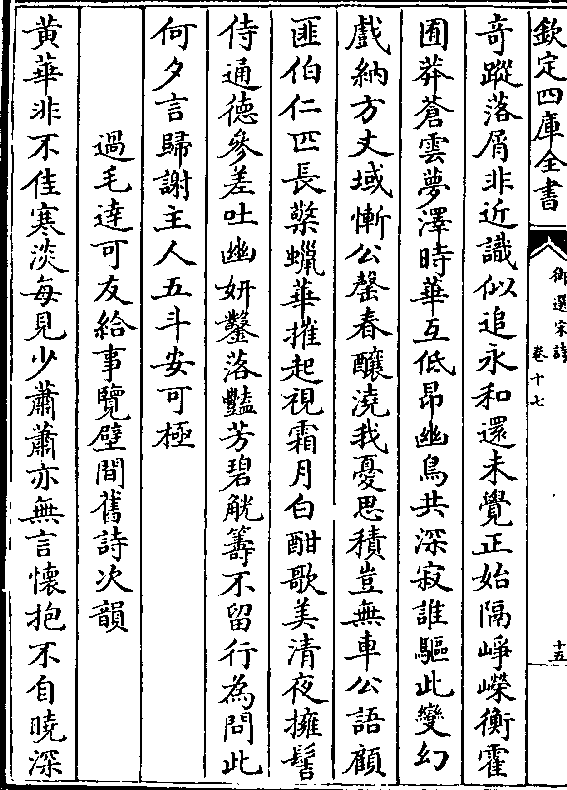 欽定四庫全書
御選宋詩
卷十七
十五
竒蹤落屑非近識似追永和還未覺正始隔崢嶸衡霍
囿莽蒼雲夢澤時華互低昻幽鳥共深寂誰驅此變幻
戲納方丈域慚公罄春釀澆我憂思積豈無車公語顧
匪伯仁匹長檠蠟華摧起視霜月白酣歌美清夜擁髻
侍通德參差吐幽妍鑿落豔芳碧觥籌不留行為問此
何夕言歸謝主人五斗安可極
過毛逹可友給事覽壁間舊詩次韻
黄華非不佳寒淡每見少蕭蕭亦無言懷抱不自曉深